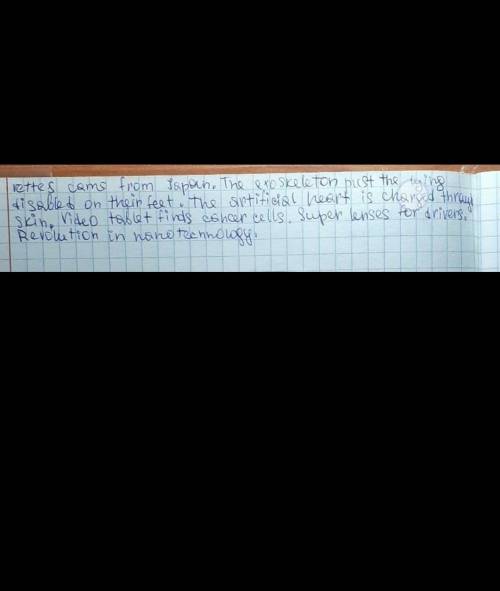 rettes cams from Japan. The exoskeleton pust the lying
disabled on their feet. The artificial heart is charged throug
skin. Video tablet finds cancer cells. Super lenses for drivers.
Revolution in nanotechnology.